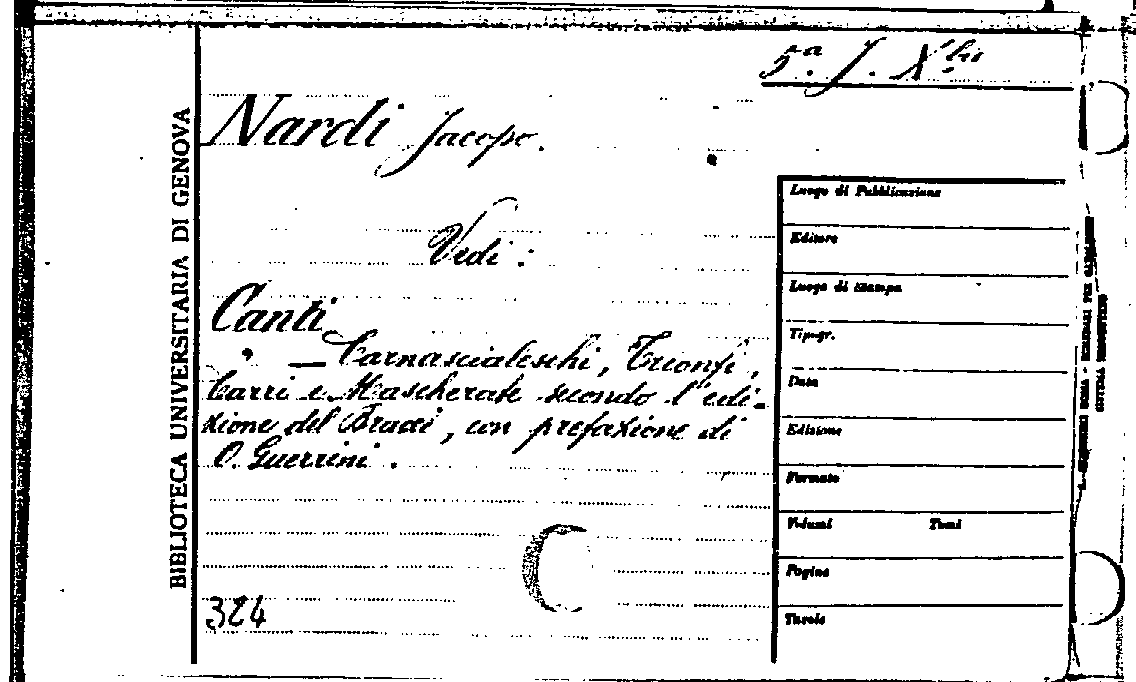 5ª. J. Xbis
BIBLIOTECA UNIVERSITARIA DI GENOVA
Nardi Jacopo.
Vedi:
Canti
— Carnascialeschi, Trionfi,
Carri e Mascherate secondo l'edi-
zione del Bracci, con prefazione di
O. Guerrini.
324
Luogo di Pubblicazione
Editore
Luogo di Stampa
Tipogr.
Data
Edizione
Formato
Volumi Tomi
Pagine
Tavole